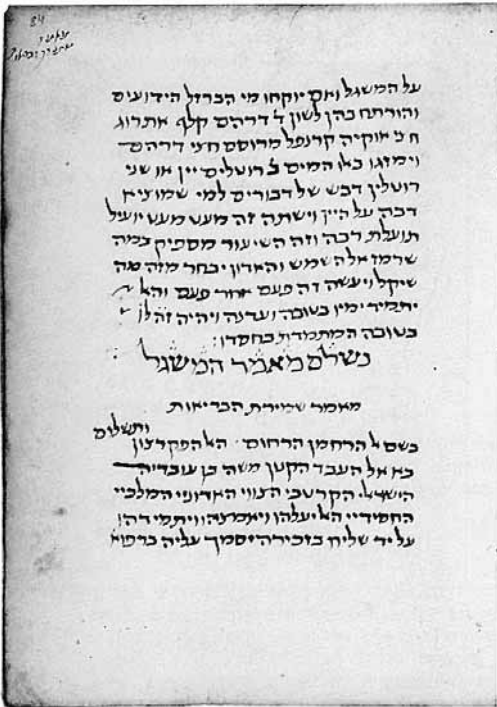 84
על המשגל ואם יוקחו מי הברזל הידועים
והורתח בהן לשון ל דרהם קלף אתרוג
חצי אוקיה קרנפל מרוסס חצי דרהם
וימזגו באו המים ב רוטלים יין או שני
רוטלין דבש של דבורים למי שמוציא
דבה על היין וישתה זה מעט מעט יועיל
תועלת רבה וזה השיעור מספיק במה
שרמז אלה שמש והאדון יבחר מזה מה
שיקל ויעשה זה פעם אחר פעם והא
יתמיד ימיו בטובה ועדנה ויהיה זה לו
בטובה המתמדת בחסדו:
נשלם מאמר המשגל
מאמר שמירת הבריאות
ותשלים
בשם א הרחמן הרחום הא הפקר צון
בא אל העבד הקטן משה בן עובדיה
הישראלי הקרטבי הצווי האדוני המלכיי
החסידיי הא יעלהו ויאמצהו ויתמידהו
על יד שליח בזכירה יסמך עליה ברפוא